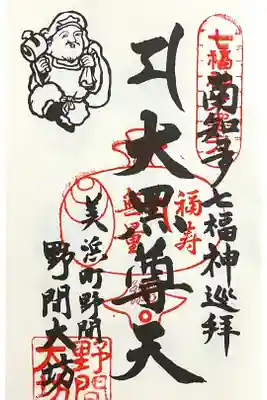 七福
南知多七福神巡拝
大黒尊天
福寿
無量
美浜町野間
野間大坊
野間
大坊